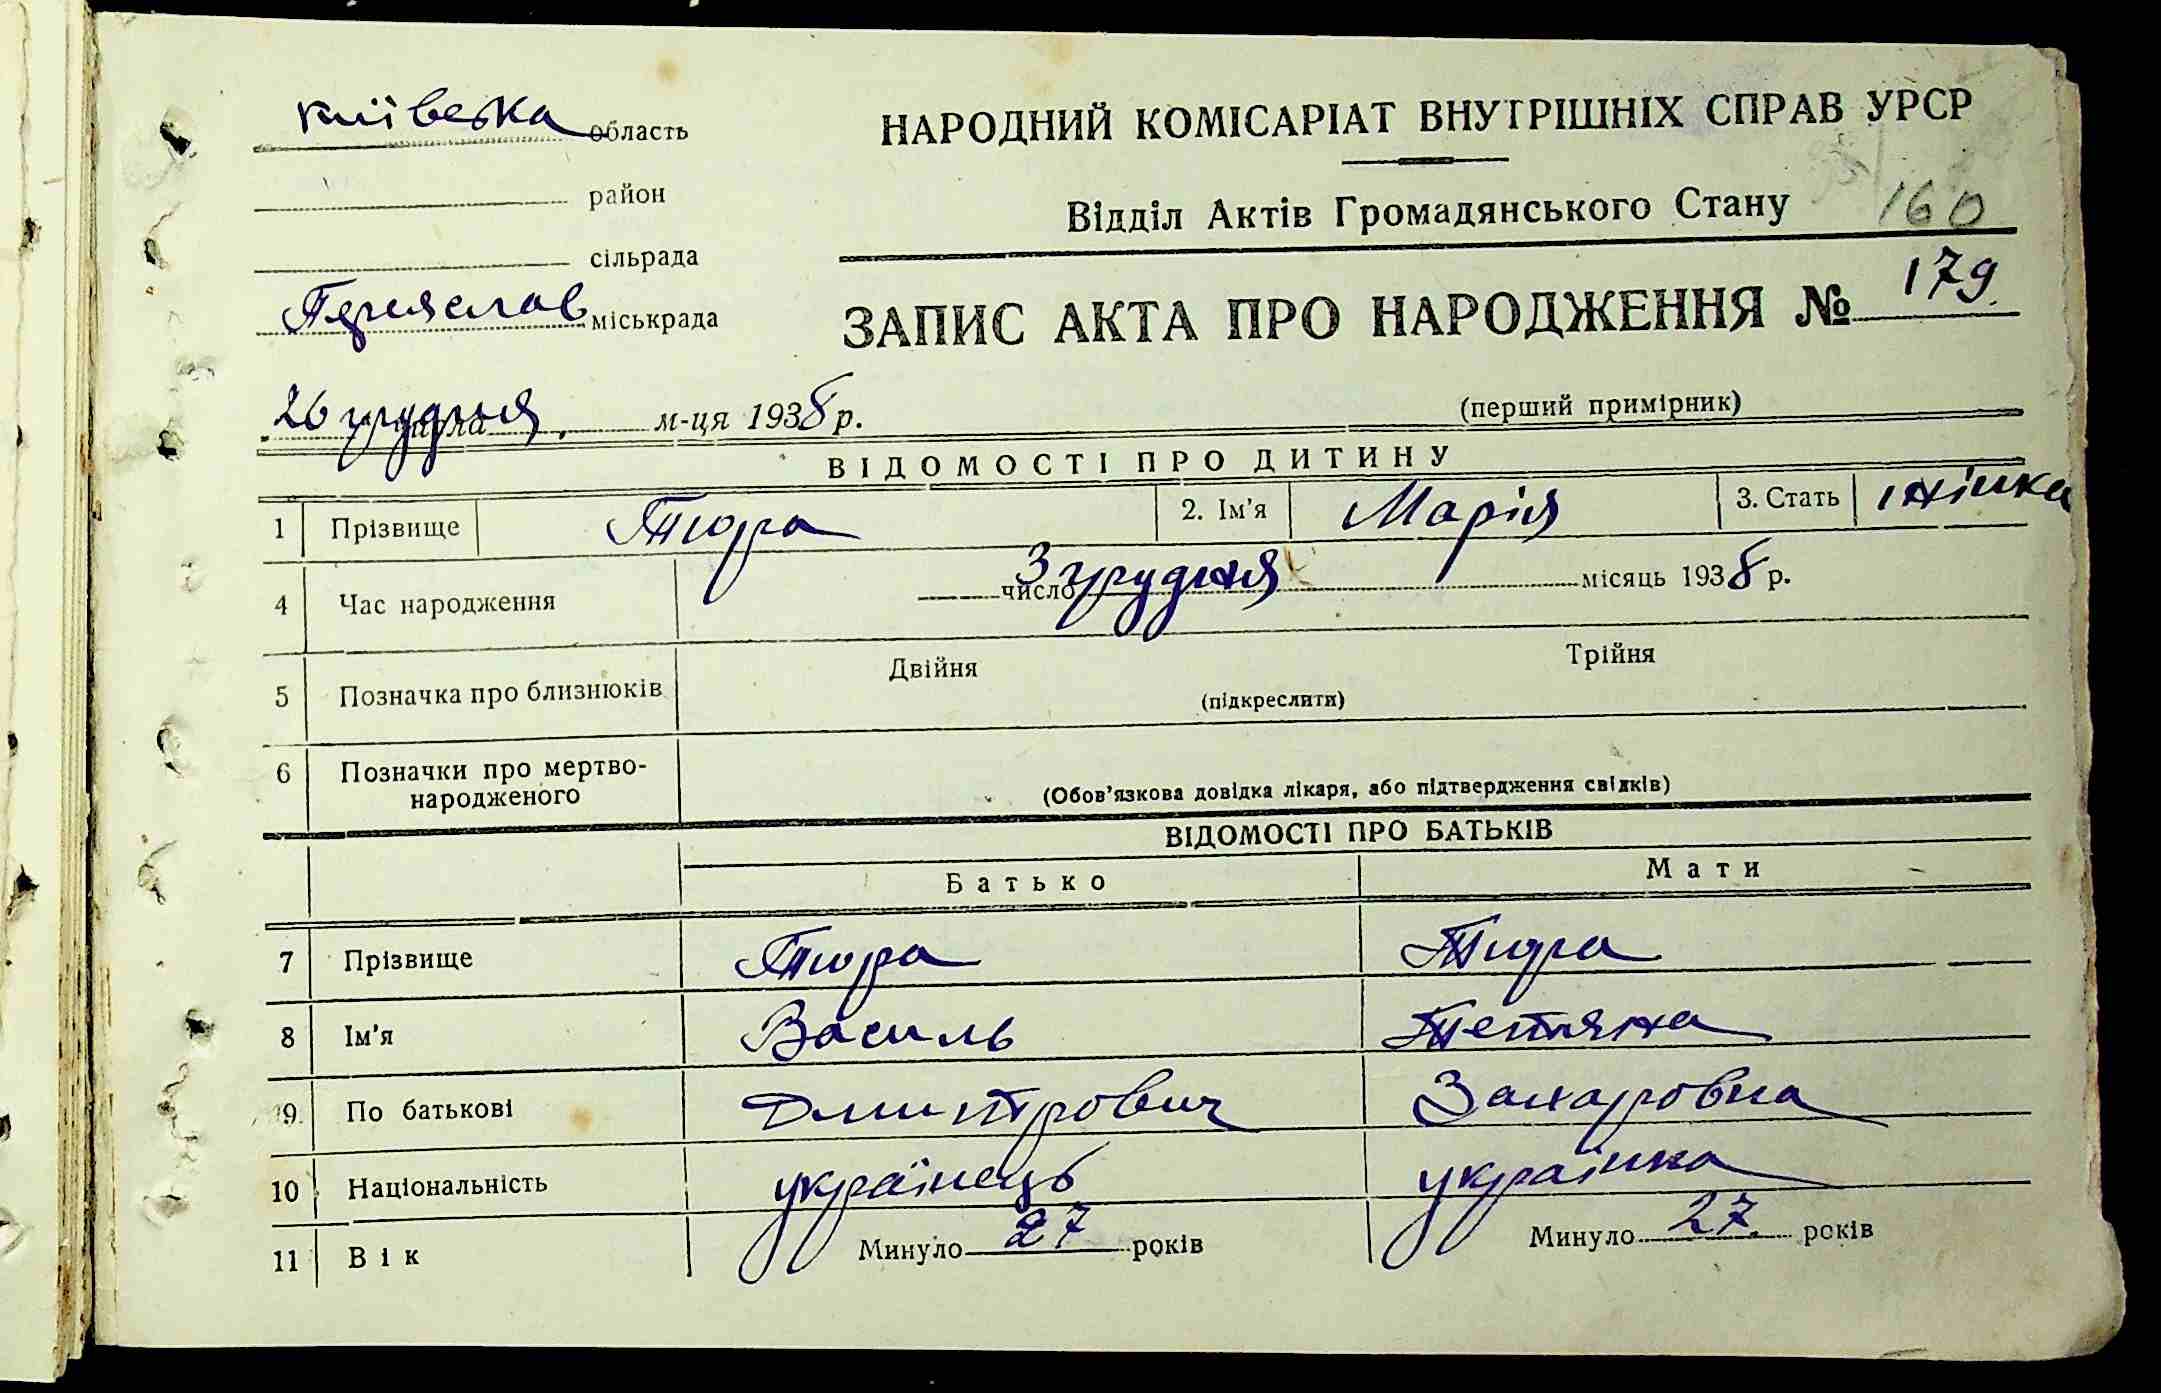 Київська область
район
сільрада
Переяслав міськрада
НАРОДНИЙ КОМІСАРІАТ ВНУТРІШНІХ СПРАВ УРСР
Відділ Актів Громадянського Стану
160
ЗАПИС АКТА ПРО НАРОДЖЕННЯ № 179
26 грудня числа м-ця 1938 р.
(перший примірник)
ВІДОМОСТІ ПРО ДИТИНУ
1 Прізвище Тюра 2. Ім'я Марія 3. Стать жінка
4 Час народження 3 число грудня місяць 1938 р.
5 Позначка про близнюків Двійня Трійня
(підкреслити)
6 Позначки про мертво-
народженого
(Обов'язкова довідка лікаря, або підтвердження свідків)
ВІДОМОСТІ ПРО БАТЬКІВ
Батько Мати
7 Прізвище Тюра Тюра
8 Ім'я Василь Тетяна
9. По батькові Дмитрович Захаровна
10 Національність українець українка
11 Вік Минуло 27 років Минуло 27 років